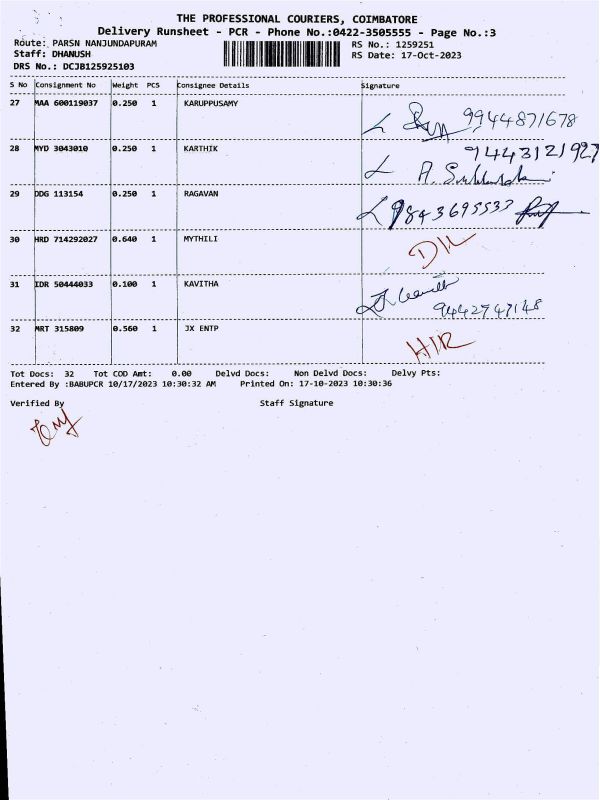 THE PROFESSIONAL COURIERS, COIMBATORE
Delivery Runsheet - PCR - Phone No.:0422-3505555 - Page No.:3
Route: PARSN NANJUNDAPURAM RS No.: 1259251
Staff: DHANUSH RS Date: 17-Oct-2023
DRS No.: DCJB125925103
S No Consignment No Weight PCS Consignee Details Signature
27 MAA 600119037 0.250 1 KARUPPUSAMY
9944871678
28 MYD 3043010 0.250 1 KARTHIK 9443121927
29 DDG 113154 0.250 1 RAGAVAN
9843695533
30 HRD 714292027 0.640 1 MYTHILI
D/L
31 IDR 50444033 0.100 1 KAVITHA
9442747148
32 MRT 315809 0.560 1 JX ENTP
Tot Docs: 32 Tot COD Amt: 0.00 Delvd Docs: Non Delvd Docs: Delvy Pts:
Entered By :BABUPCR 10/17/2023 10:30:32 AM Printed On: 17-10-2023 10:30:36
Verified By Staff Signature